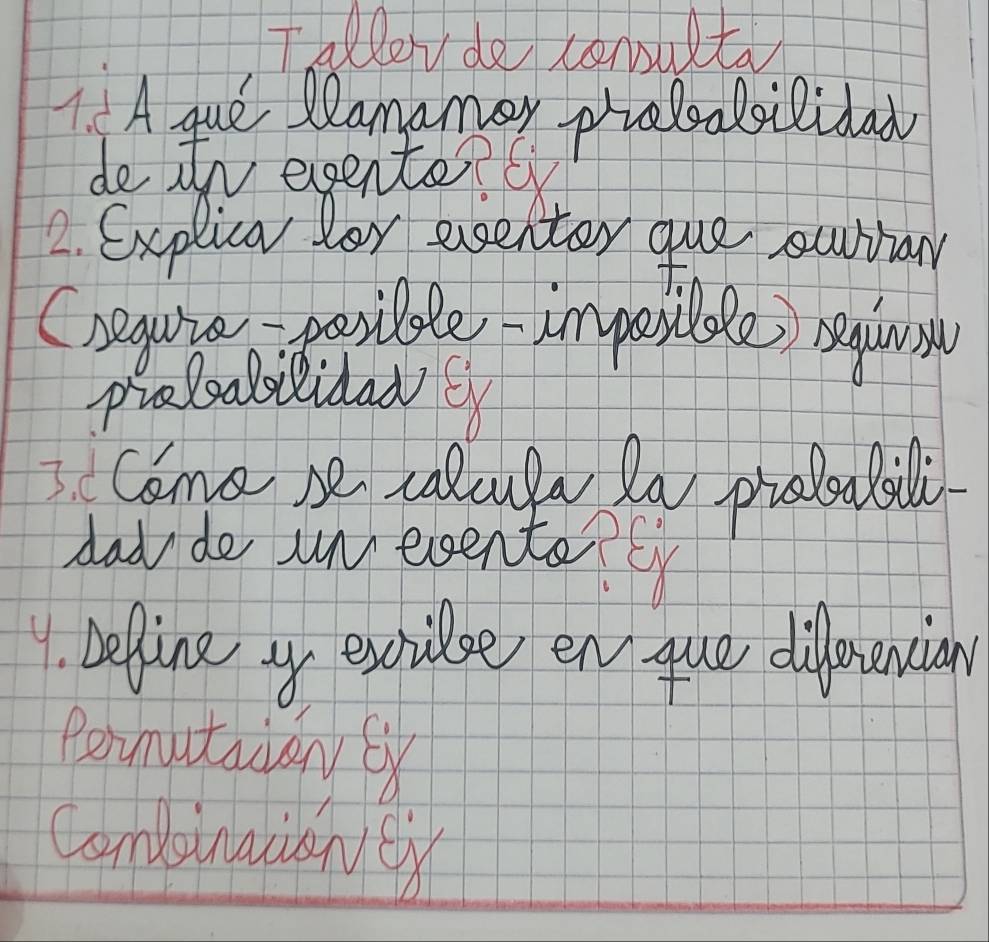 Taller de consulta
1. ¿A qué llamamos probabilidad
de un evento? Ej
2. Explica los eventos que ocurran
(seguro-posible-imposible) según su
probabilidad Ej
3. ¿Cómo se calcula la probabili-
dad de un evento? Ej
4. Define y escribe en que diferencian
Permutación Ej
Combinación Ej